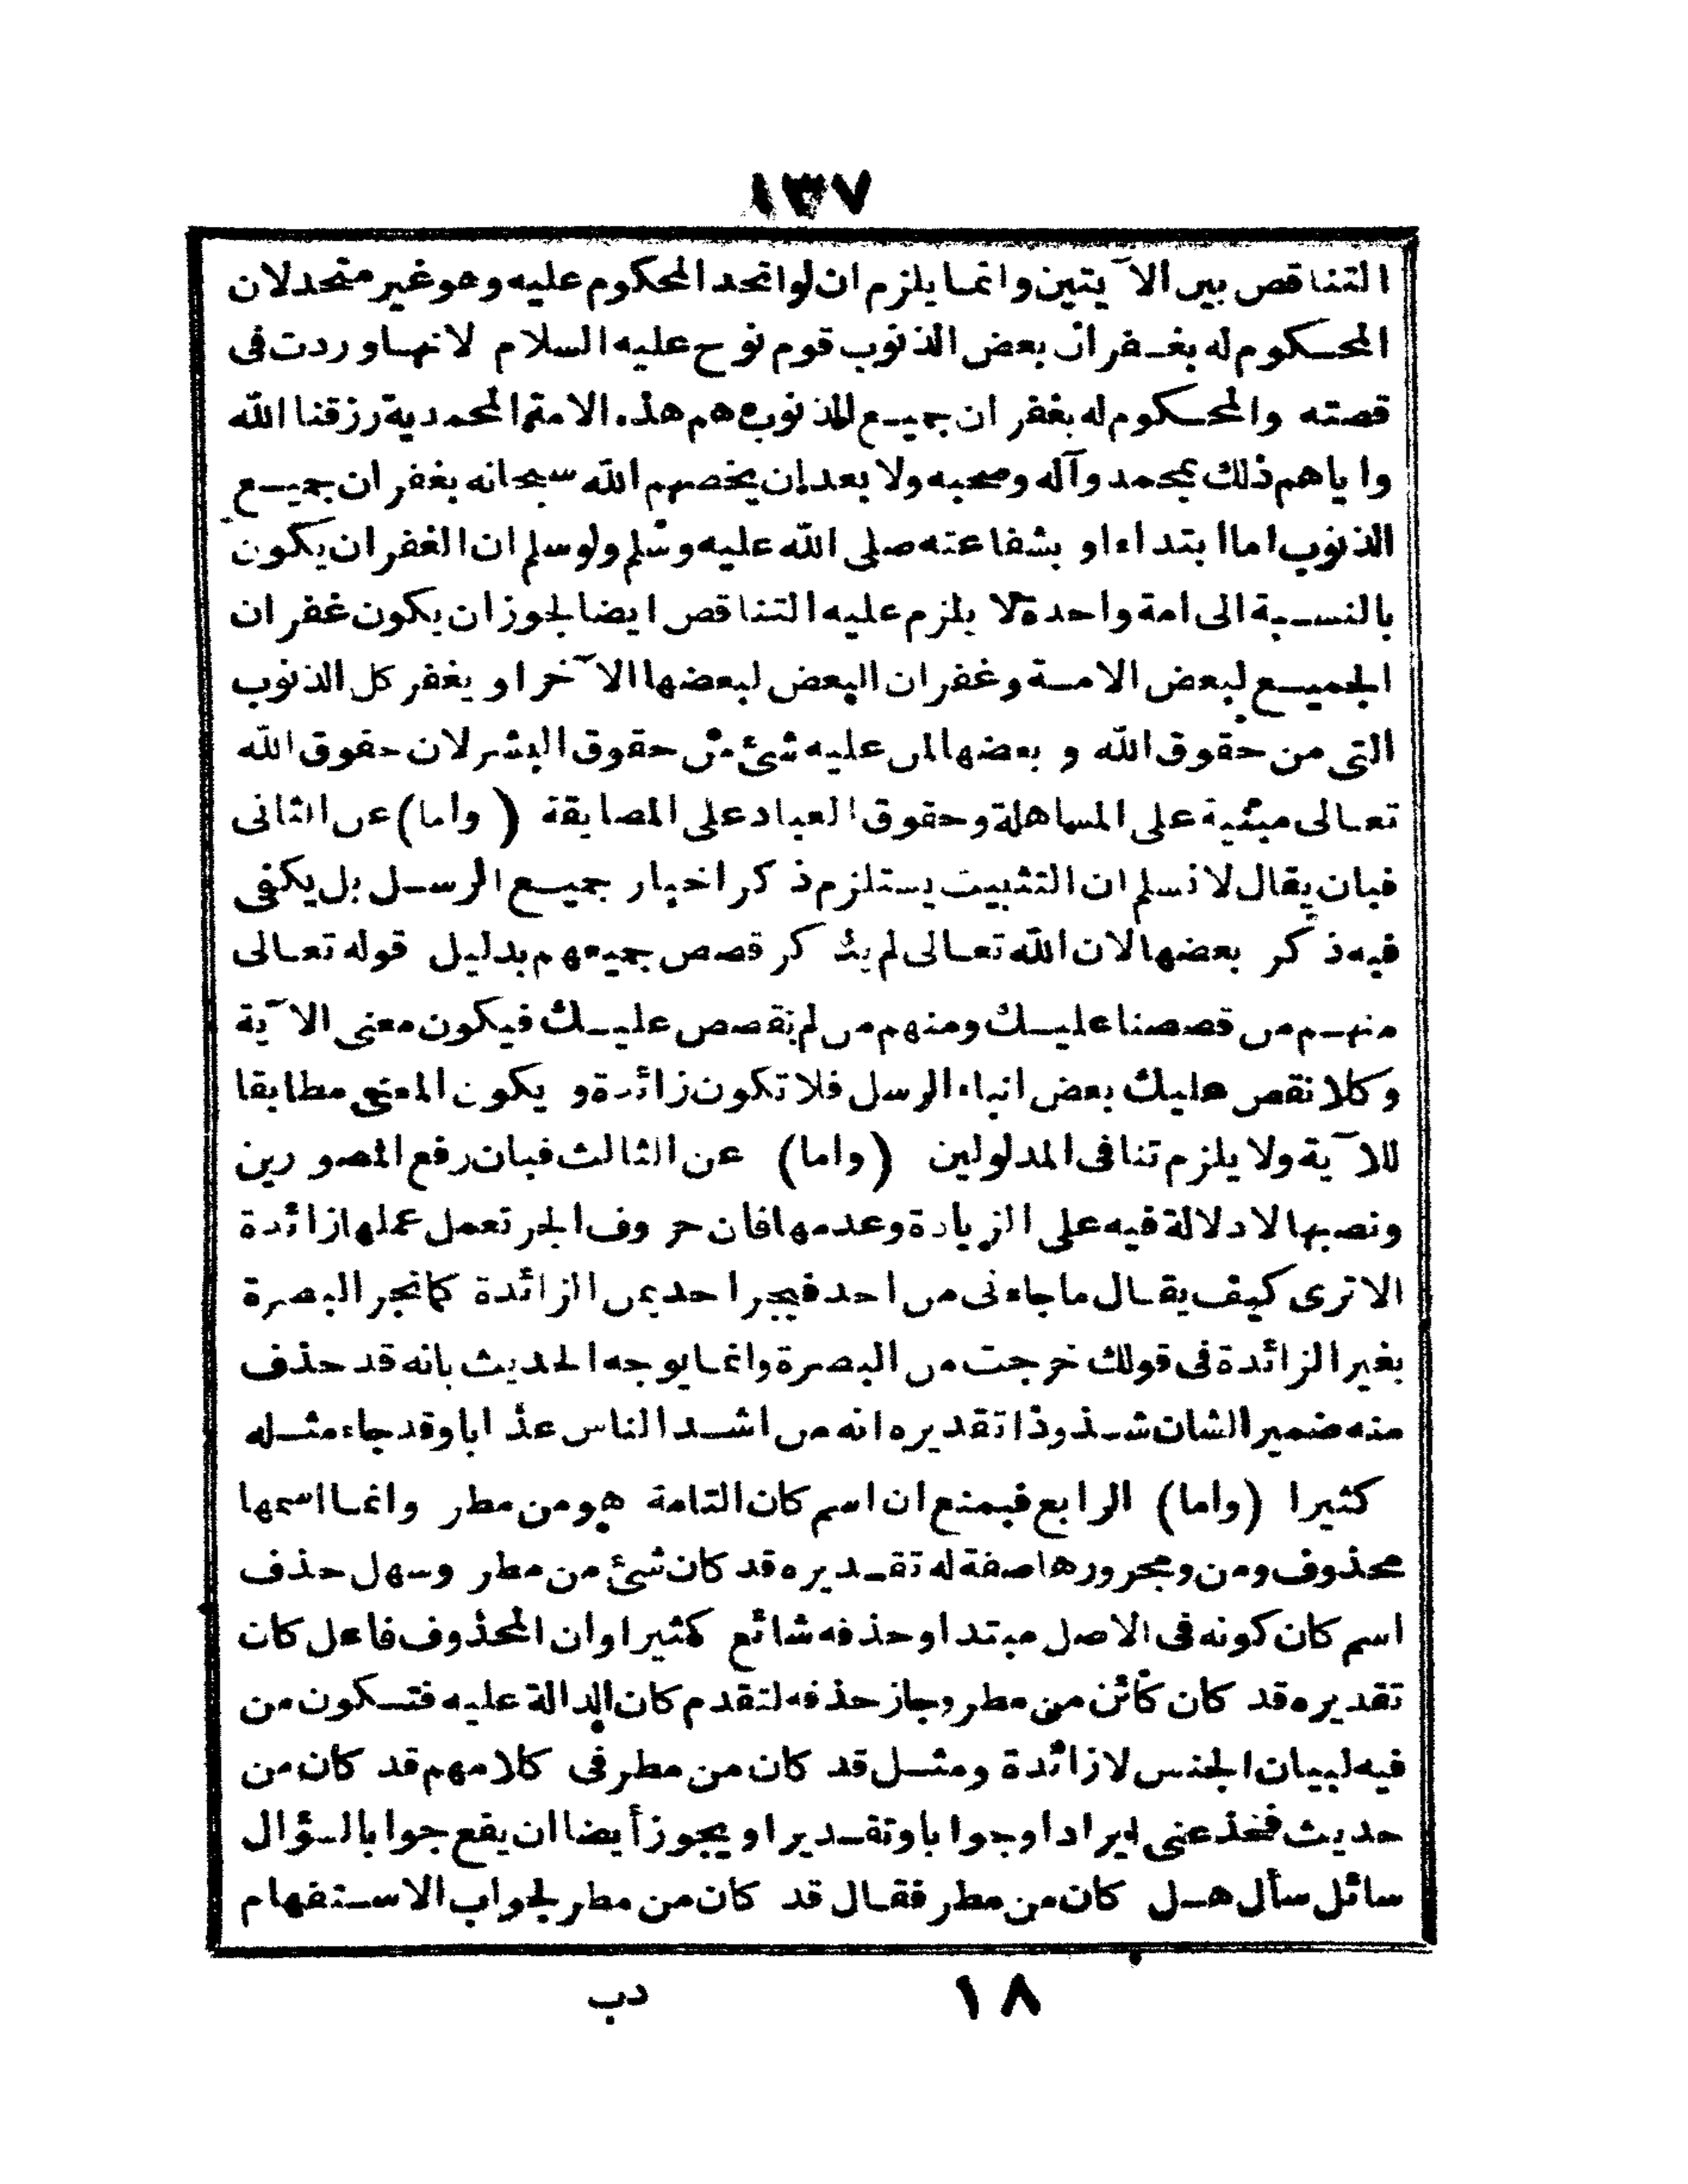 ١٣٧
التناقص بين الآيتين وانما يلزم ان لو اتحد المحكوم عليه وهو غير متحد لان
المحكوم له بغفران بعض الذنوب قوم نوح عليه السلام لانها وردت فى
قصته والمحكوم له بغفران جميع الذنوب هم هذه الامة المحمدية رزقنا الله
واياهم ذلك بمحمد وآله وصحبه ولا بعد ان يخصهم الله سبحانه بغفران جميع
الذنوب اما ابتداء او بشفاعته صلى الله عليه وسلم ولو سلم ان الغفران يكون
بالنسبة الى امة واحدة لا يلزم عليه التناقص ايضا لجوز ان يكون غفران
الجميع لبعض الامة وغفران البعض لبعضها الآخر او يغفر كل الذنوب
التى من حقوق الله و بعضها لمن عليه شئ من حقوق البشر لان حقوق الله
تعالى مبنية على المساهلة وحقوق العباد على المضايقة (واما) عن الثانى
فبان يقال لا نسلم ان التثبيت يستلزم ذكر اخبار جميع الرسل بل يكفى
فيه ذكر بعضها لان الله تعالى لم يذكر قصص جميعهم بدليل قوله تعالى
منهم من قصصنا عليك ومنهم من لم نقصص عليك فيكون معنى الآية
وكلا نقص عليك بعض انباء الرسل فلا تكون زائدة و يكون المعنى مطابقا
للآية ولا يلزم تنافى المدلولين (واما) عن الثالث فبان رفع المصورين
ونصبها لا دلالة فيه على الزيادة وعدمها فان حروف الجر تعمل عملها زائدة
الا ترى كيف يقال ما جاءنى من احد فيجر احد بمن الزائدة كما تجر البصرة
بغير الزائدة فى قولك خرجت من البصرة وانما يوجه الحديث بانه قد حذف
منه ضمير الشان شذوذا تقديره انه من اشد الناس عذابا وقد جاء مثله
كثيرا (واما) الرابع فبمنع ان اسم كان التامة هو من مطر وانما اسمها
محذوف ومن ومجرورها صفة له تقديره قد كان شئ من مطر وسهل حذف
اسم كان كونه فى الاصل مبتدا وحذفه شائع كثيرا وان المحذوف فاعل كان
تقديره قد كان كائن من مطر وجاز حذفه لتقدم كان الدالة عليه فتكون من
فيه لبيان الجنس لا زائدة ومثل قد كان من مطر فى كلامهم قد كان من
حديث فخذ عنى ايرادا وجوابا وتقديرا و يجوز أيضا ان يقع جوابا لسؤال
سائل سأل هل كان من مطر فقال قد كان من مطر لجواب الاستفهام
١٨ دب